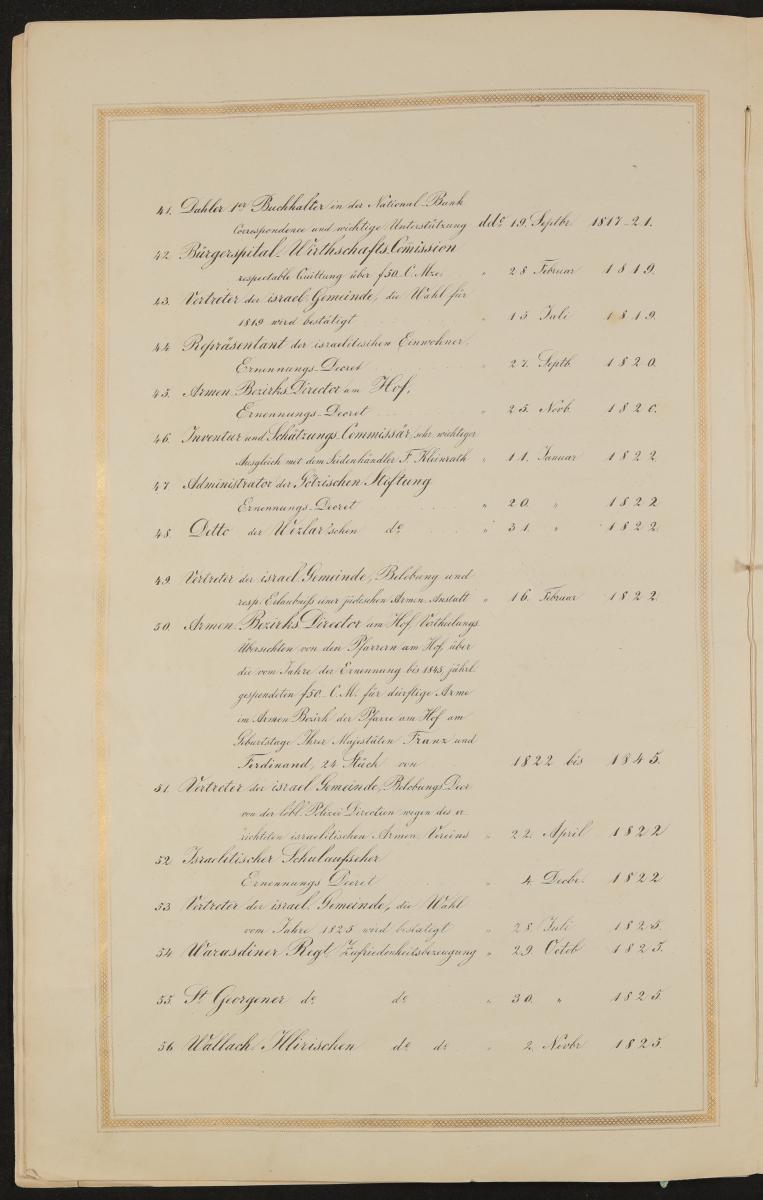 41. Dahler 1er Buchhalter in der National-Bank
Correspondence und wichtige Unterstützung ddo 19. Septbr 1817-21.
42. Bürgerspital-Wirthschafts Comission
respectable Quittung über f50. C. Mze. " 28 Februar 1819.
43. Vertreter der israel. Gemeinde, die Wahl für
1819 wird bestätigt " 15 Juli 1819.
44. Repräsentant der israelitischen Einwohner,
Ernennungs-Decret " 27. Septb. 1820.
45. Armen Bezirks Director am Hof,
Ernennungs-Decret " 25. Novb. 1820.
46. Inventur und Schätzungs-Commissär, sehr wichtiger
Ausgleich mit dem Seidenhändler F. Kleinrath " 11. Januar 1822
47. Administrator der Götzischen Stiftung
Ernennungs-Decret " 20. " 1822
48. Detto der Wezlar'schen do " 31. " 1822.
49. Vertreter der israel. Gemeinde, Belobung und
resp. Erlaubniß einer jüdischen Armen Anstalt " 16. Februar 1822.
50. Armen Bezirks Director am Hof Vertheilungs
Übersichten von den Pfarrern am Hof, über
die vom Jahre der Ernennung bis 1845, jährl.
gespendeten f50. C. M. für dürftige Arme
im Armen Bezirk der Pfarre am Hof am
Geburtstage Ihrer Majestäten Franz und
Ferdinand, 24 Stück von 1822 bis 1845.
51. Vertreter der israel. Gemeinde, Belobungs Decr.
von der löbl. Polizei Direction wegen des er-
richteten israelitischen Armen Vereins " 22. April 1822
52. Israelitischer Schulaufseher
Ernennungs Decret " 4. Decbr. 1822
53. Vertreter der israel. Gemeinde, die Wahl
vom Jahre 1825 wird bestätigt " 28. Juli 1825.
54. Warasdiner Regt. Zufriedenheitsbezeugung " 29. Octob 1825.
55. St. Georgener do do " 30. " 1825.
56. Wallach Illirischen do do " 2. Novbr 1825.